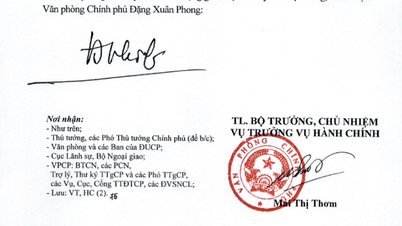 Văn phòng Chính phủ Đặng Xuân Phong:
Nơi nhận:
- Như trên;
- Thủ tướng, các Phó Thủ tướng Chính phủ (để b/c);
- Văn phòng và các Ban của ĐUCP;
- Cục Lãnh sự, Bộ Ngoại giao;
- VPCP: BTCN, các PCN,
Trợ lý, Thư ký TTgCP và các Phó TTgCP,
các Vụ, Cục, Cổng TTĐTCP, các ĐVSNCL;
- Lưu: VT, HC (2).
TL. BỘ TRƯỞNG, CHỦ NHIỆM
VỤ TRƯỞNG VỤ HÀNH CHÍNH
VĂN PHÒNG CHÍNH PHỦ
Mai Thị Thơm